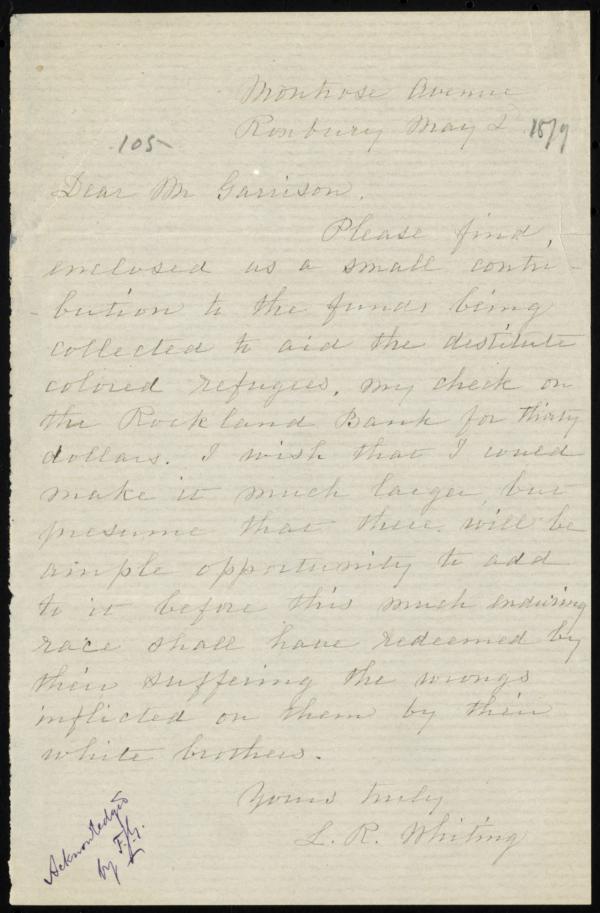 Montrose Avenue
Roxbury May 2 1879
105
Dear Mr Garrison,
Please find,
enclosed as a small contri-
-bution to the funds being
collected to aid the destitute
colored refugees, my check on
the Rockland Bank for thirty
dollars. I wish that I could
make it much larger, but
presume that there will be
ample opportunity to add
to it before this much enduring
race shall have redeemed by
their suffering the wrongs
inflicted on them by their
white brothers.
Yours truly
L. R. Whiting
Acknowledged
by F.J.G.